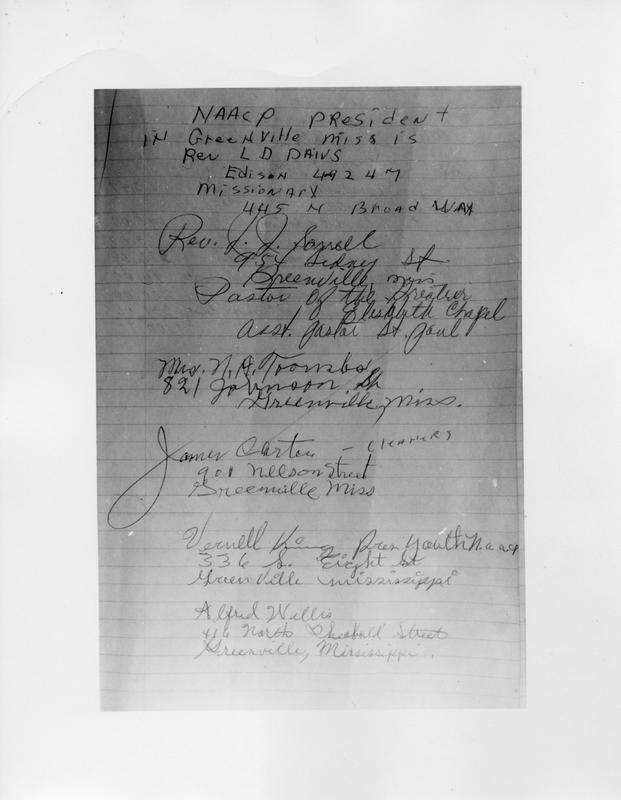 NAACP President
in Greenville Miss is
Rev L D Davis
Edison 49247
Missionary
445 N Broadway
Rev. J. J. Sorrell
954 Sidney St
Greenville, Miss
Pastor of the Greater
Elisabeth Chapel
Asst. Pastor St. Paul
Mrs. N. A. Toombs
821 Johnson St
Greenville, Miss.
James Carter – Cleaners
901 Nelson Street
Greenville Miss
Vernell King Pres Youth N.a.acp
336 S. Eight st
Greenville mississippi
Alfred Willis
North Theobald Street
Greenville, Mississippi.